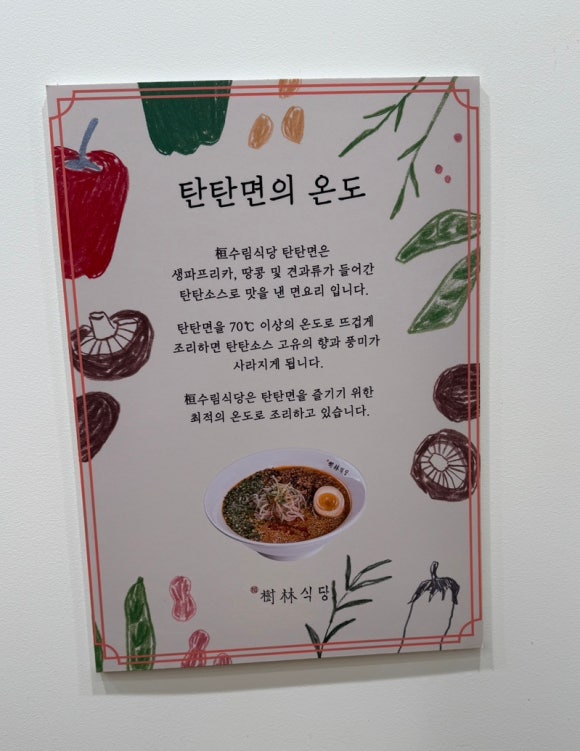 탄탄면의 온도
桓수림식당 탄탄면은
생파프리카, 땅콩 및 견과류가 들어간
탄탄소스로 맛을 낸 면요리 입니다.
탄탄면을 70℃ 이상의 온도로 뜨겁게
조리하면 탄탄소스 고유의 향과 풍미가
사라지게 됩니다.
桓수림식당은 탄탄면을 즐기기 위한
최적의 온도로 조리하고 있습니다.
樹林식당
樹林식당